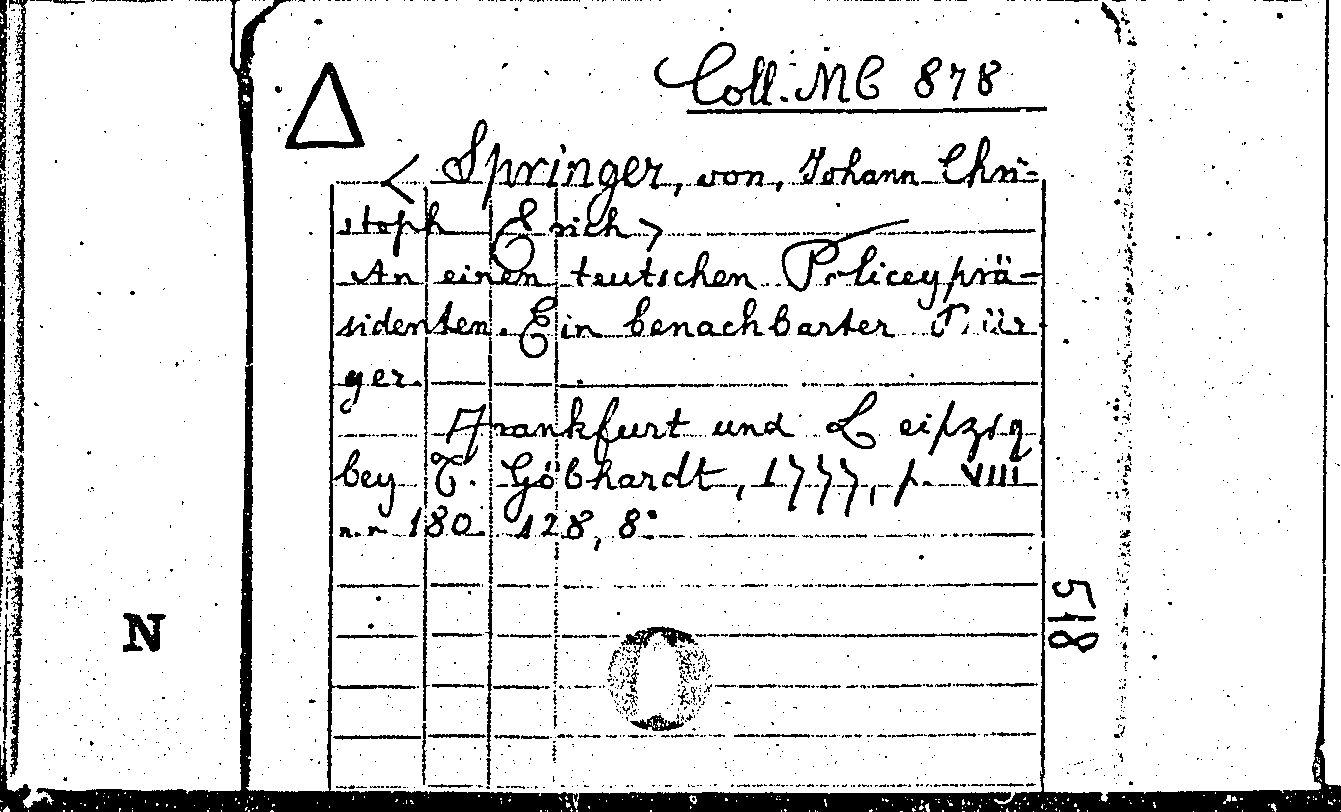 Coll. MC 878
< Springer, von, Johann Chri-
stoph Erich >
An einen teutschen Policeyprä-
sidenten. Ein benachbarter Bür-
ger.
Frankfurt und Leipzig
bey T. Göbhardt, 1777, p. VIII
180. 128, 8°
518
N